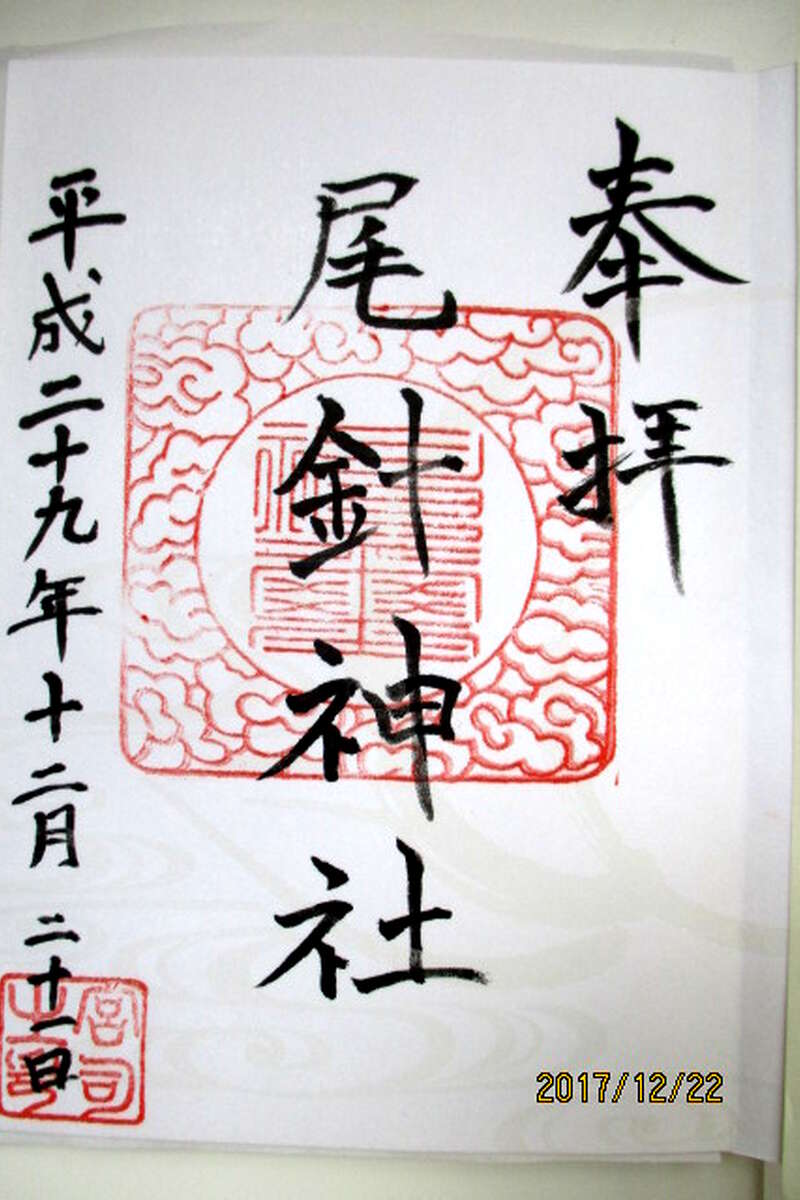 奉拝
尾針神社
平成二十九年十二月二十一日
宮司之印
2017/12/22